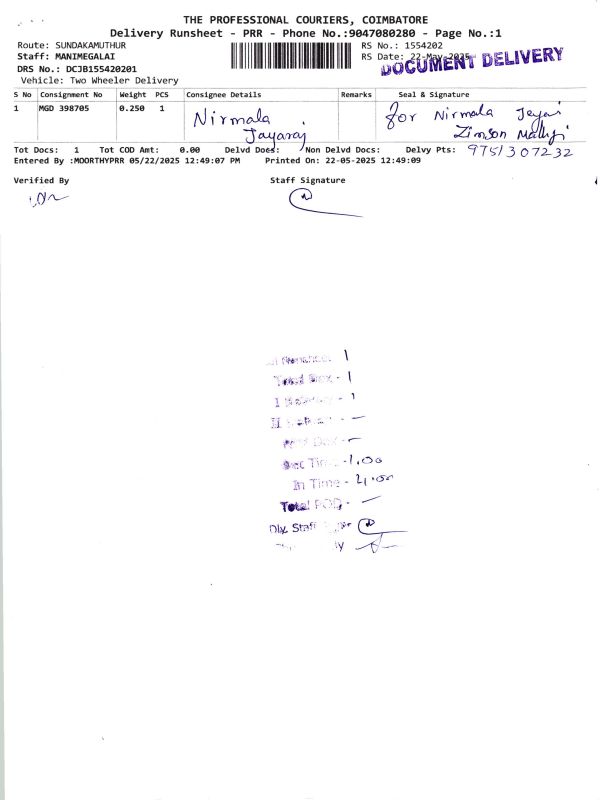 THE PROFESSIONAL COURIERS, COIMBATORE
Delivery Runsheet - PRR - Phone No.:9047080280 - Page No.:1
Route: SUNDAKAMUTHUR RS No.: 1554202
Staff: MANIMEGALAI RS Date: 22-May-2025
DOCUMENT DELIVERY
DRS No.: DCJB155420201
Vehicle: Two Wheeler Delivery
S No Consignment No Weight PCS Consignee Details Remarks Seal & Signature
1 MGD 398705 0.250 1 Nirmala for Nirmala
Jayaraj Zimson
Tot Docs: 1 Tot COD Amt: 0.00 Delvd Docs: Non Delvd Docs: Delvy Pts: 9751307232
Entered By :MOORTHYPRR 05/22/2025 12:49:07 PM Printed On: 22-05-2025 12:49:09
Verified By Staff Signature
1
Total - 1
I - 1
II -
Time - 1.00
In Time - 4.00
Total POD -
Dly. Staff